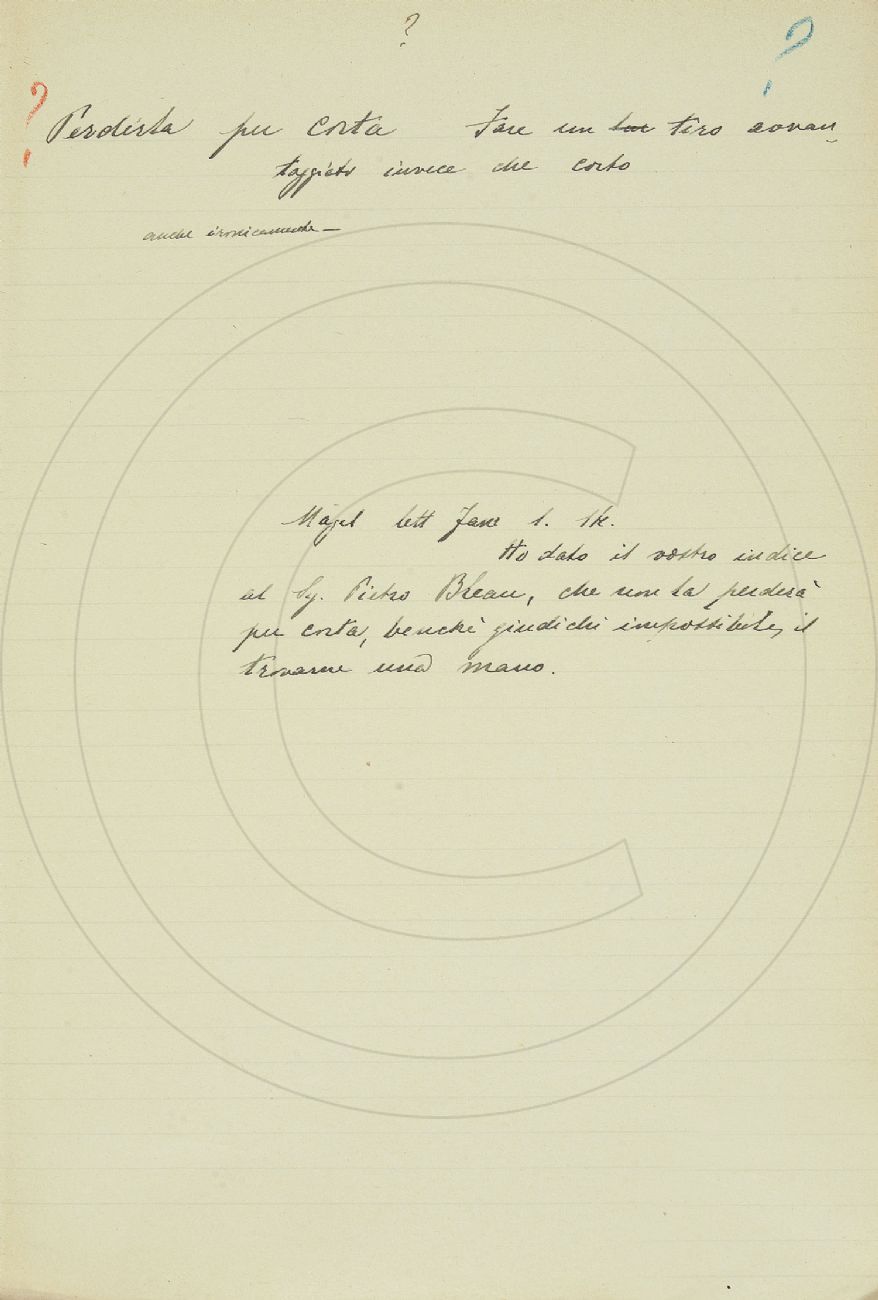 ?
?
? Perderla per corta Fare un tiro avvan-
taggiato invece che corto
anche ironicamente —
Magal lett fam 1. 14.
Ho dato il vostro indice
al Sig. Pietro Bleau, che non la perderà
per corta, benchè giudichi impossibile, il
trovarne una mano.